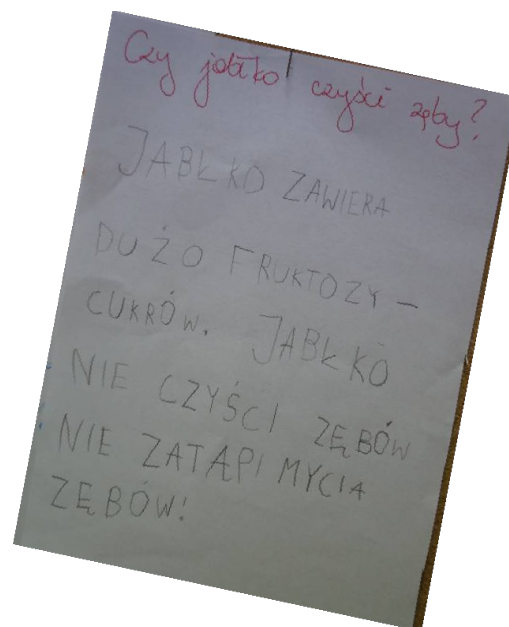 Czy jabłko czyści zęby?
JABŁKO ZAWIERA
DUŻO FRUKTOZY –
CUKRÓW. JABŁKO
NIE CZYŚCI ZĘBÓW
NIE ZATĄPI MYCIA
ZĘBÓW!